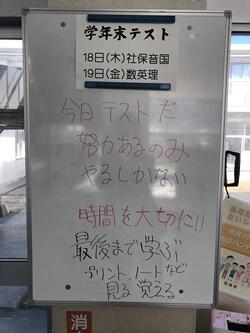 学年末テスト
18日(木)社保音国
19日(金)数英理
今日テストだ
努力あるのみ
やるしかない
時間を大切に!!
最後まで学ぶ
プリント、ノートなど
見る覚える
消